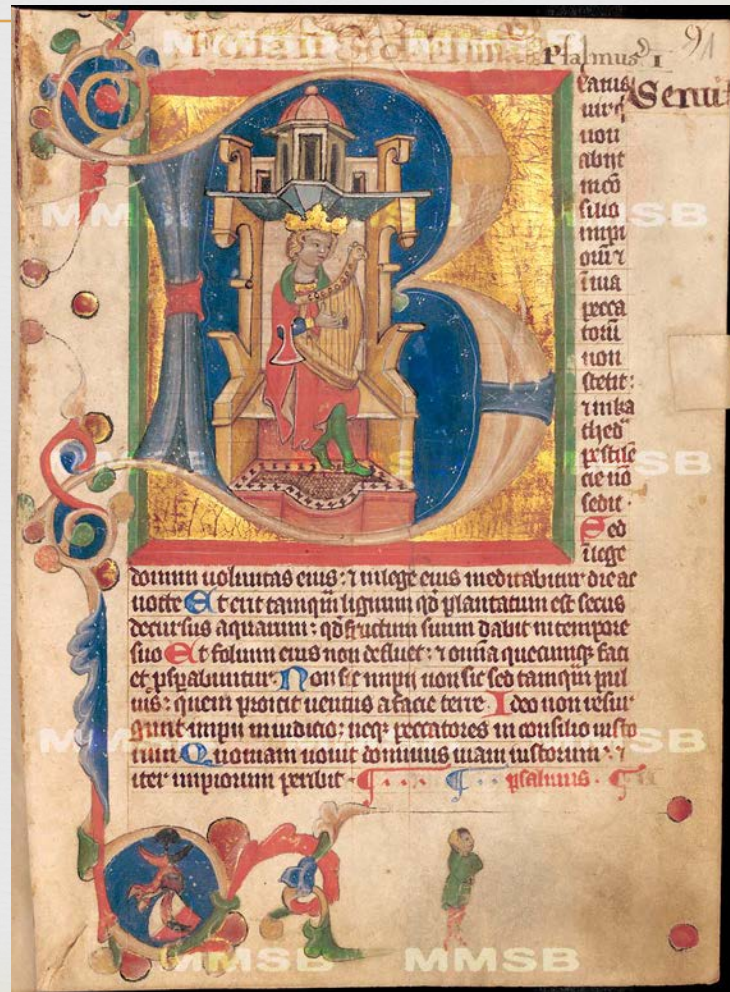 Psalmus I
91
Seruit
eatus
uir q̄
non
abiit
in cō
silio
impi
oru͞ ⁊
ī uia
pecca
toru͞
non
stetit :
⁊ in ka
thed᷑
pestilē
cie nō
sedit ·
Sed
ī lege
domini uoluntas eius : ⁊ in lege eius meditabitur die ac
nocte Et erit tamqͫ lignum qd̓ plantatum est secus
decursus aquarum : qd̓ fructum suum dabit in tempore
suo Et folium eius non defluet : ⁊ om̄ia quecunqꝫ faci
et psꝑabuntur · Non sic impii non sic sed tamqͫ pul
uis : quem proicit uentus a facie terre · Ideo non resur
gunt impii in iudicio : neqꝫ peccatores in consilio iusto
rum Quoniam nouit dominus uiam iustorum : ⁊
iter impiorum peribit · psalmus ·
MMSB
MMSB
MMSB
MMSB
MMSB
MMSB
MMSB
MMSB